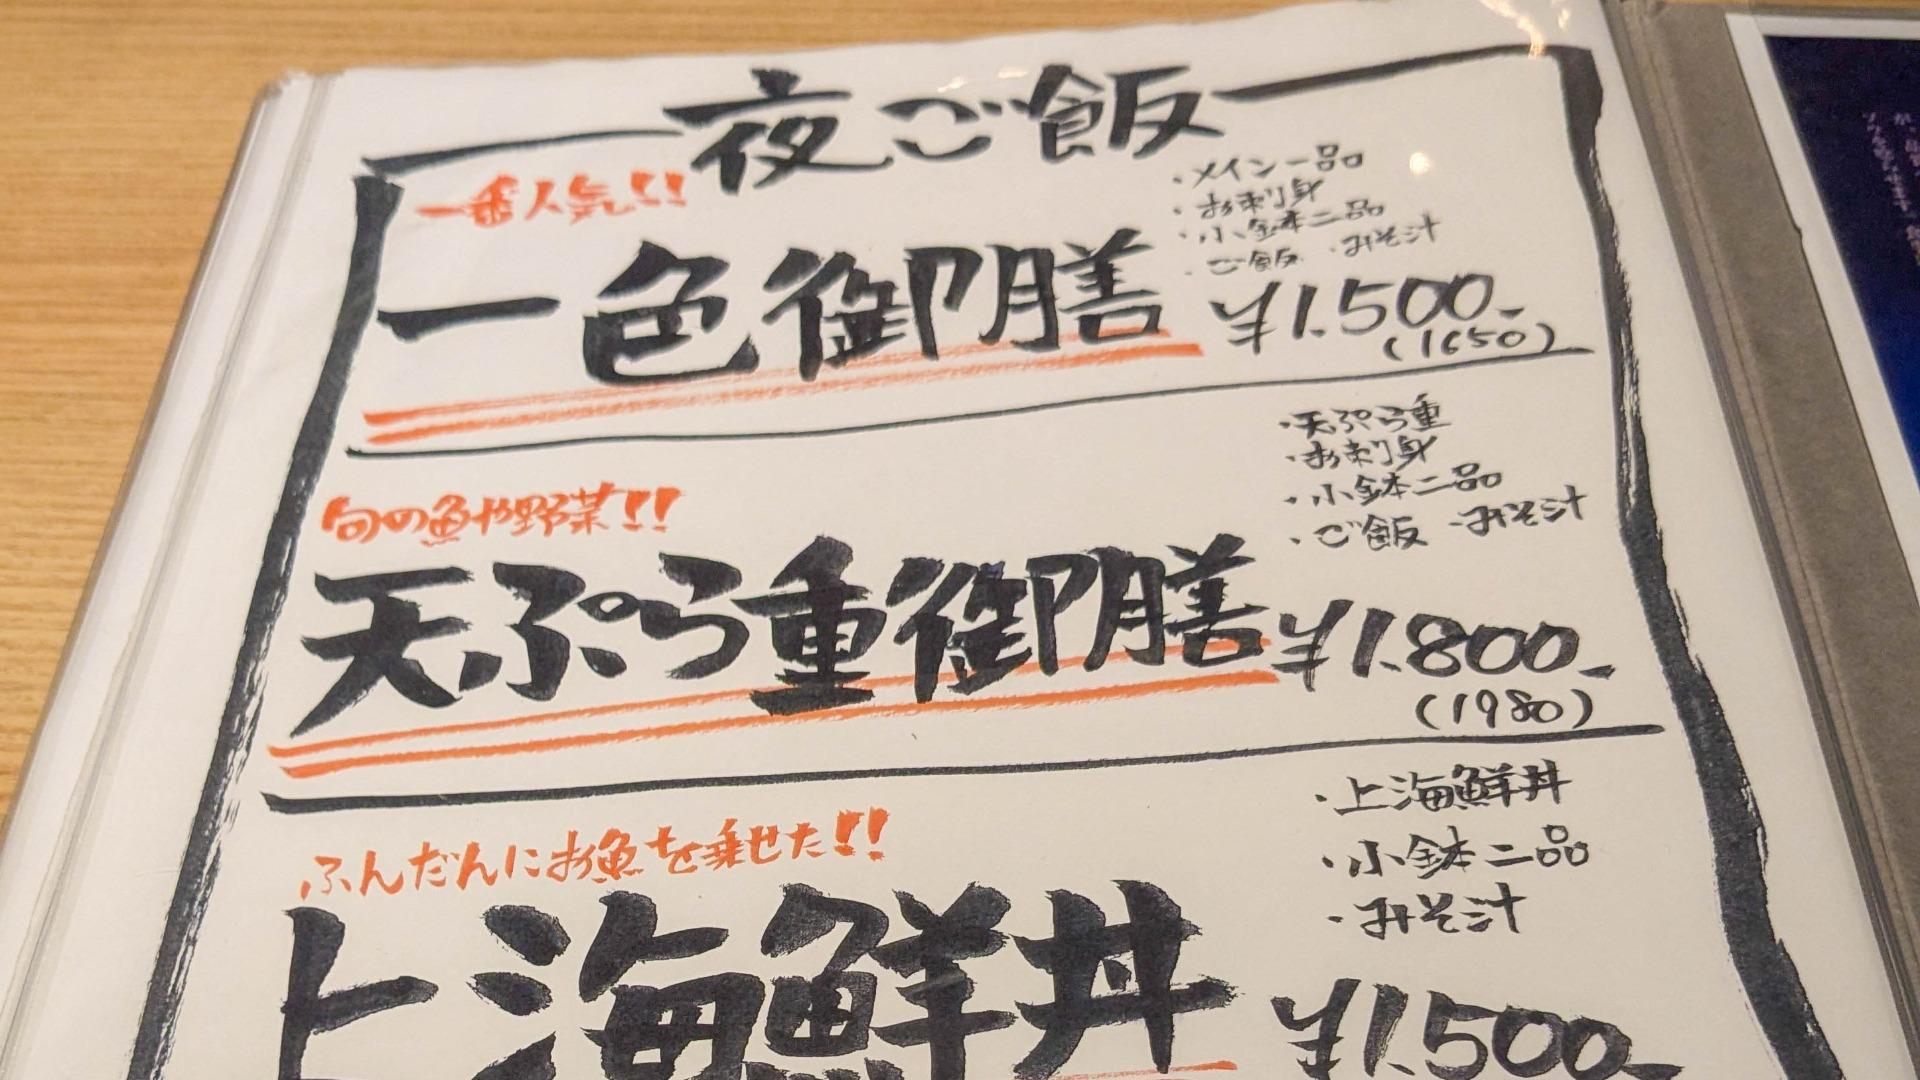 夜ご飯
一番人気!!
一色御膳
・メイン一品
・お刺身
・小鉢二品
・ご飯 ・みそ汁
¥1.500-
(1650)
旬の魚や野菜!!
天ぷら重御膳
・天ぷら重
・お刺身
・小鉢二品
・ご飯 ・みそ汁
¥1.800-
(1980)
ふんだんにお魚を乗せた!!
上海鮮丼
・上海鮮丼
・小鉢二品
・みそ汁
¥1.500-